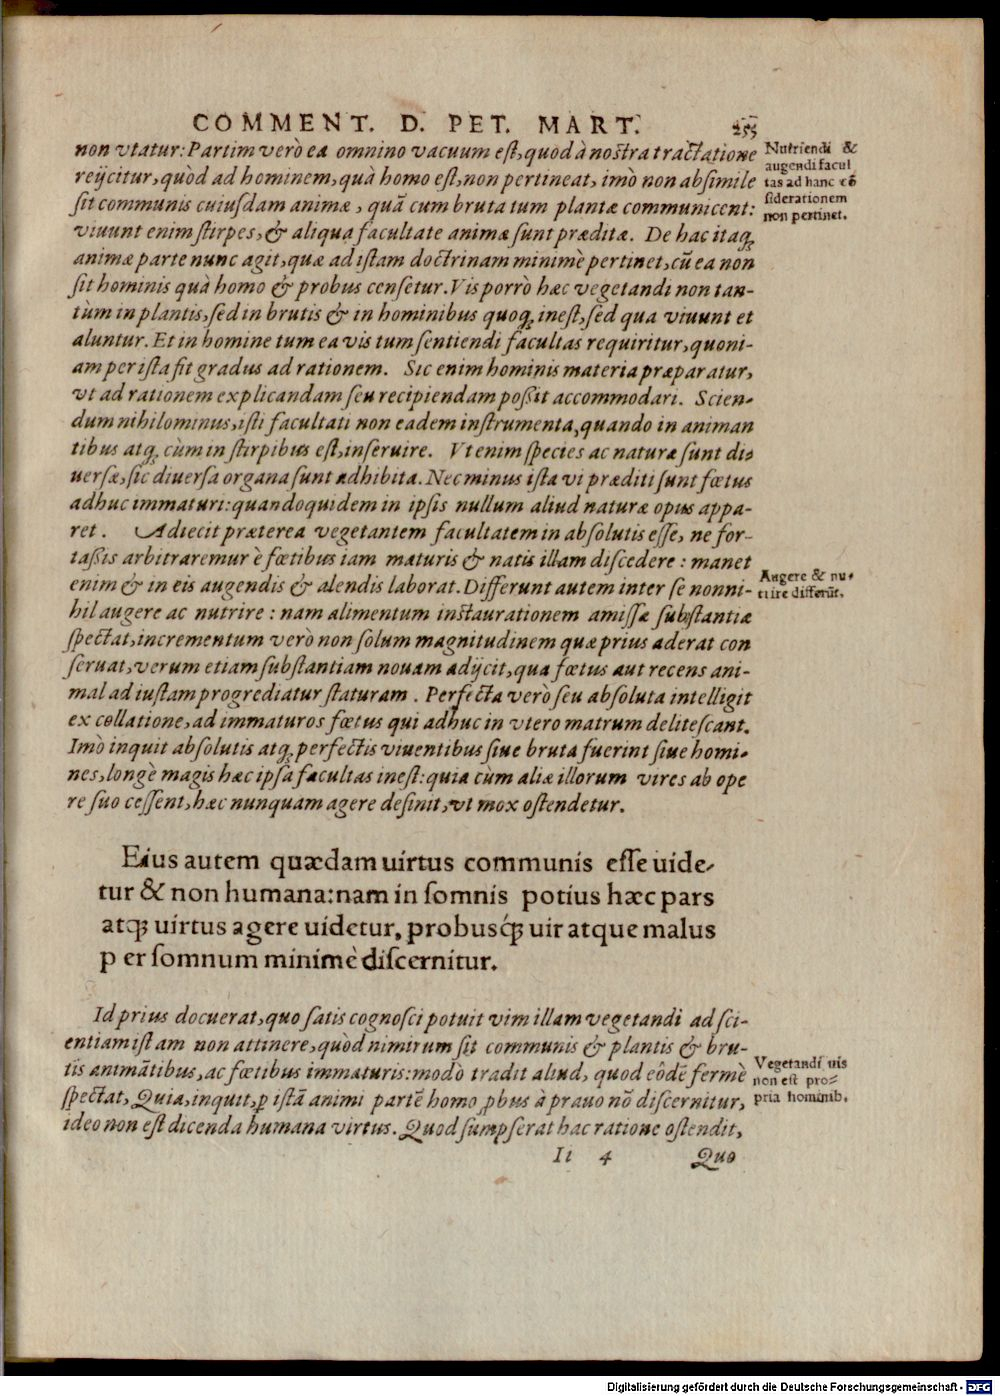 COMMENT. D. PET. MART. 255
non vtatur: Partim verò ea omnino vacuum est, quod à nostra tractatione
reijcitur, quòd ad hominem, quà homo est, non pertineat, imò non absimile
sit communis cuiusdam animæ, quã cum bruta tum plantæ communicent:
viuunt enim stirpes, & aliqua facultate animæ sunt præditæ. De hac itaq;
animæ parte nunc agit, quæ ad istam doctrinam minimè pertinet, cũ ea non
sit hominis quà homo & probus censetur. Vis porrò hæc vegetandi non tan-
tùm in plantis, sed in brutis & in hominibus quoq; inest, sed qua viuunt et
aluntur. Et in homine tum ea vis tum sentiendi facultas requiritur, quoni-
am per ista fit gradus ad rationem. Sic enim hominis materia præparatur,
vt ad rationem explicandam seu recipiendam possit accommodari. Scien-
dum nihilominus, isti facultati non eadem instrumenta, quando in animan
tibus atq; cùm in stirpibus est, inseruire. Vt enim species ac naturæ sunt di-
uersæ, sic diuersa organa sunt adhibita. Nec minus ista vi præditi sunt fœtus
adhuc immaturi: quandoquidem in ipsis nullum aliud naturæ opus appa-
ret. Adiecit præterea vegetantem facultatem in absolutis esse, ne for-
tassis arbitraremur è fœtibus iam maturis & natis illam discedere: manet
enim & in eis augendis & alendis laborat. Differunt autem inter se nonni-
hil augere ac nutrire: nam alimentum instaurationem amissæ substantiæ
spectat, incrementum verò non solum magnitudinem quæ prius aderat con
seruat, verum etiam substantiam nouam adijcit, qua fœtus aut recens ani-
mal ad iustam progrediatur staturam. Perfecta verò seu absoluta intelligit
ex collatione, ad immaturos fœtus qui adhuc in vtero matrum delitescant.
Imò inquit absolutis atq; perfectis viuentibus siue bruta fuerint siue homi-
nes, longè magis hæc ipsa facultas inest: quia cùm aliæ illorum vires ab ope
re suo cessent, hæc nunquam agere desinit, vt mox ostendetur.
Nutriendi &
augendi facul
tas ad hanc cõ
siderationem
non pertinet.
Augere & nu-
trire differũt.
Eius autem quædam uirtus communis esse uide-
tur & non humana: nam in somnis potius hæc pars
atq; uirtus agere uidetur, probusq́; uir atque malus
p er somnum minimè discernitur.
Id prius docuerat, quo satis cognosci potuit vim illam vegetandi ad sci-
entiam ist am non attinere, quòd nimirum sit communis & plantis & bru-
tis animãtibus, ac fœtibus immaturis: modò tradit aliud, quod eôdẽ fermè
spectat, Quia, inquit, ꝑ istã animi partẽ homo ꝓbus à prauo nõ discernitur,
ideo non est dicenda humana virtus. Quod sumpserat hac ratione ostendit,
Vegetandi uis
non est pro-
pria hominib.
Ii 4 Quo
Digitalisierung gefördert durch die Deutsche Forschungsgemeinschaft - DFG